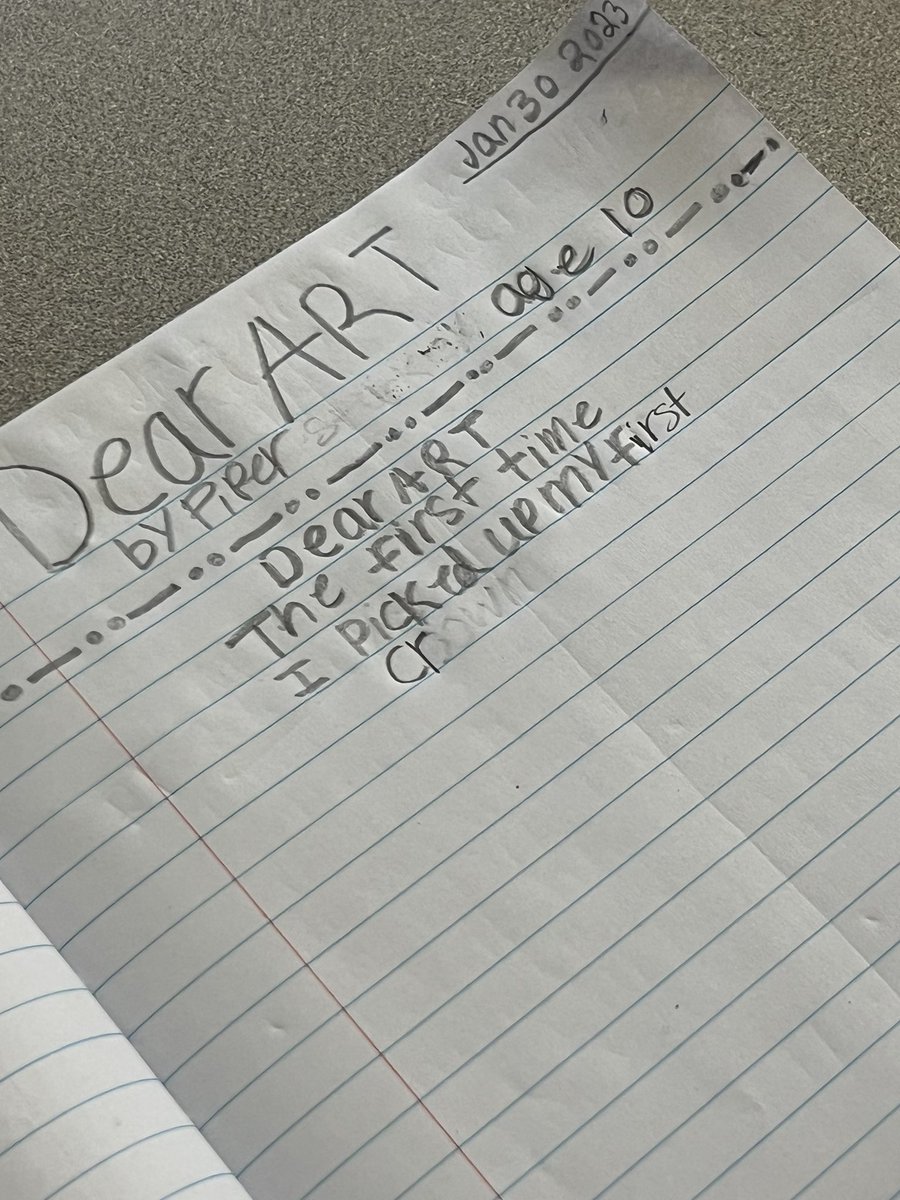 Jan 30 2023
Dear ART
by Piper age 10
Dear ART
The first time
I Picked up my first